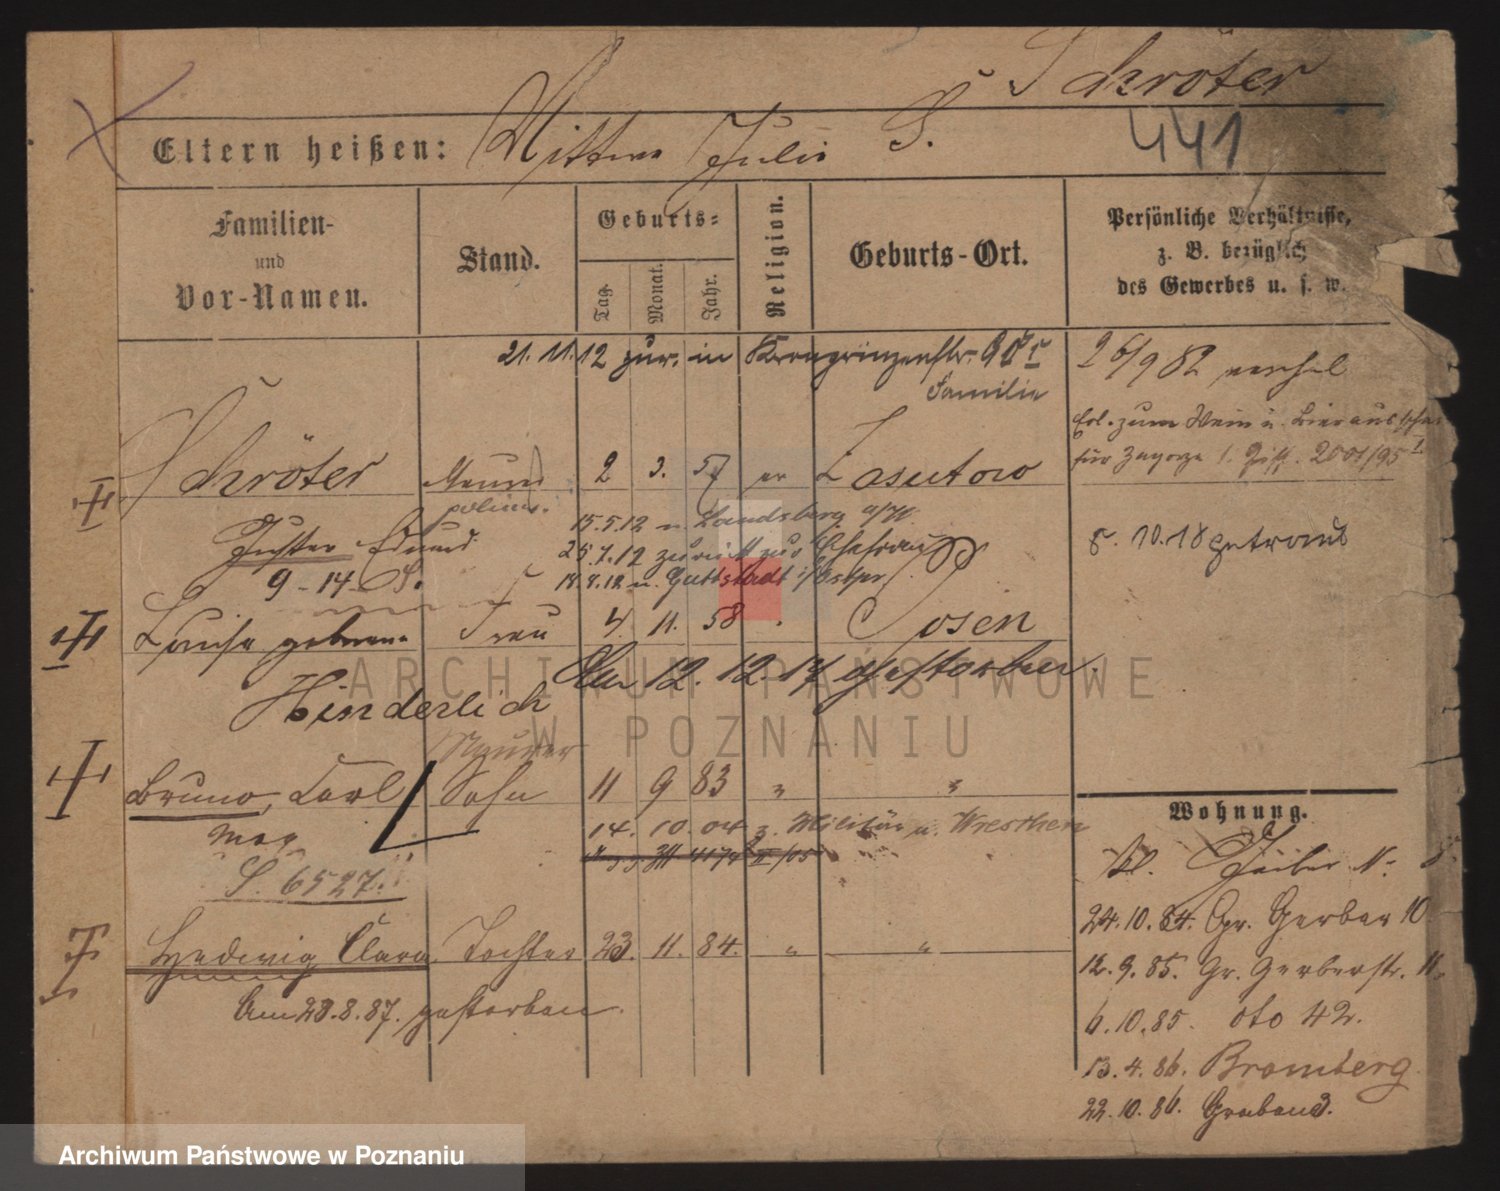 Schröter
Eltern heißen: Wittwe Julie S.
441
Familien-
und
Vor-Namen.
Stand.
Geburts-
Tag.
Monat.
Jahr.
Religion.
Geburts-Ort.
Persönliche Verhältnisse,
z. B. bezüglich
des Gewerbes u. s. w.
21. 11. 12 zur. in Kronprinzenstr.
Familie
26/9 82
Erl. zum Wein u. Bierausschank
für Zagorze 2001/95
Schröter 2 3. 57 ev Lasutowo
15. 5. 12 n. Landsberg a/W.
Gustav Eduard 25 7. 12 zurück zur Ehefrau
9-14 S. 18. 8. 12 n. Guttstadt i/Ostpr.
8. 10. 18 getraut
Luise geborene Frau 4. 11. 58 Posen
Am 12. 12. 14 gestorben.
Hinderlich
Bruno, Carl Sohn 11 9 83 " "
Max 14. 10. 04 z. Militär n. Wreschen
S. 6527.
Hedwig Clara Tochter 23. 11. 84. " "
Am 28. 8. 87. gestorben.
Wohnung.
Kl.
24. 10. 84. Gr. Gerber 10
12. 9. 85. Gr. Gerberstr. 11.
6. 10. 85. oto 42.
13. 4. 86. Bromberg
22. 10. 86. Graben 3.
ARCHIWUM PAŃSTWOWE
W POZNANIU
Archiwum Państwowe w Poznaniu